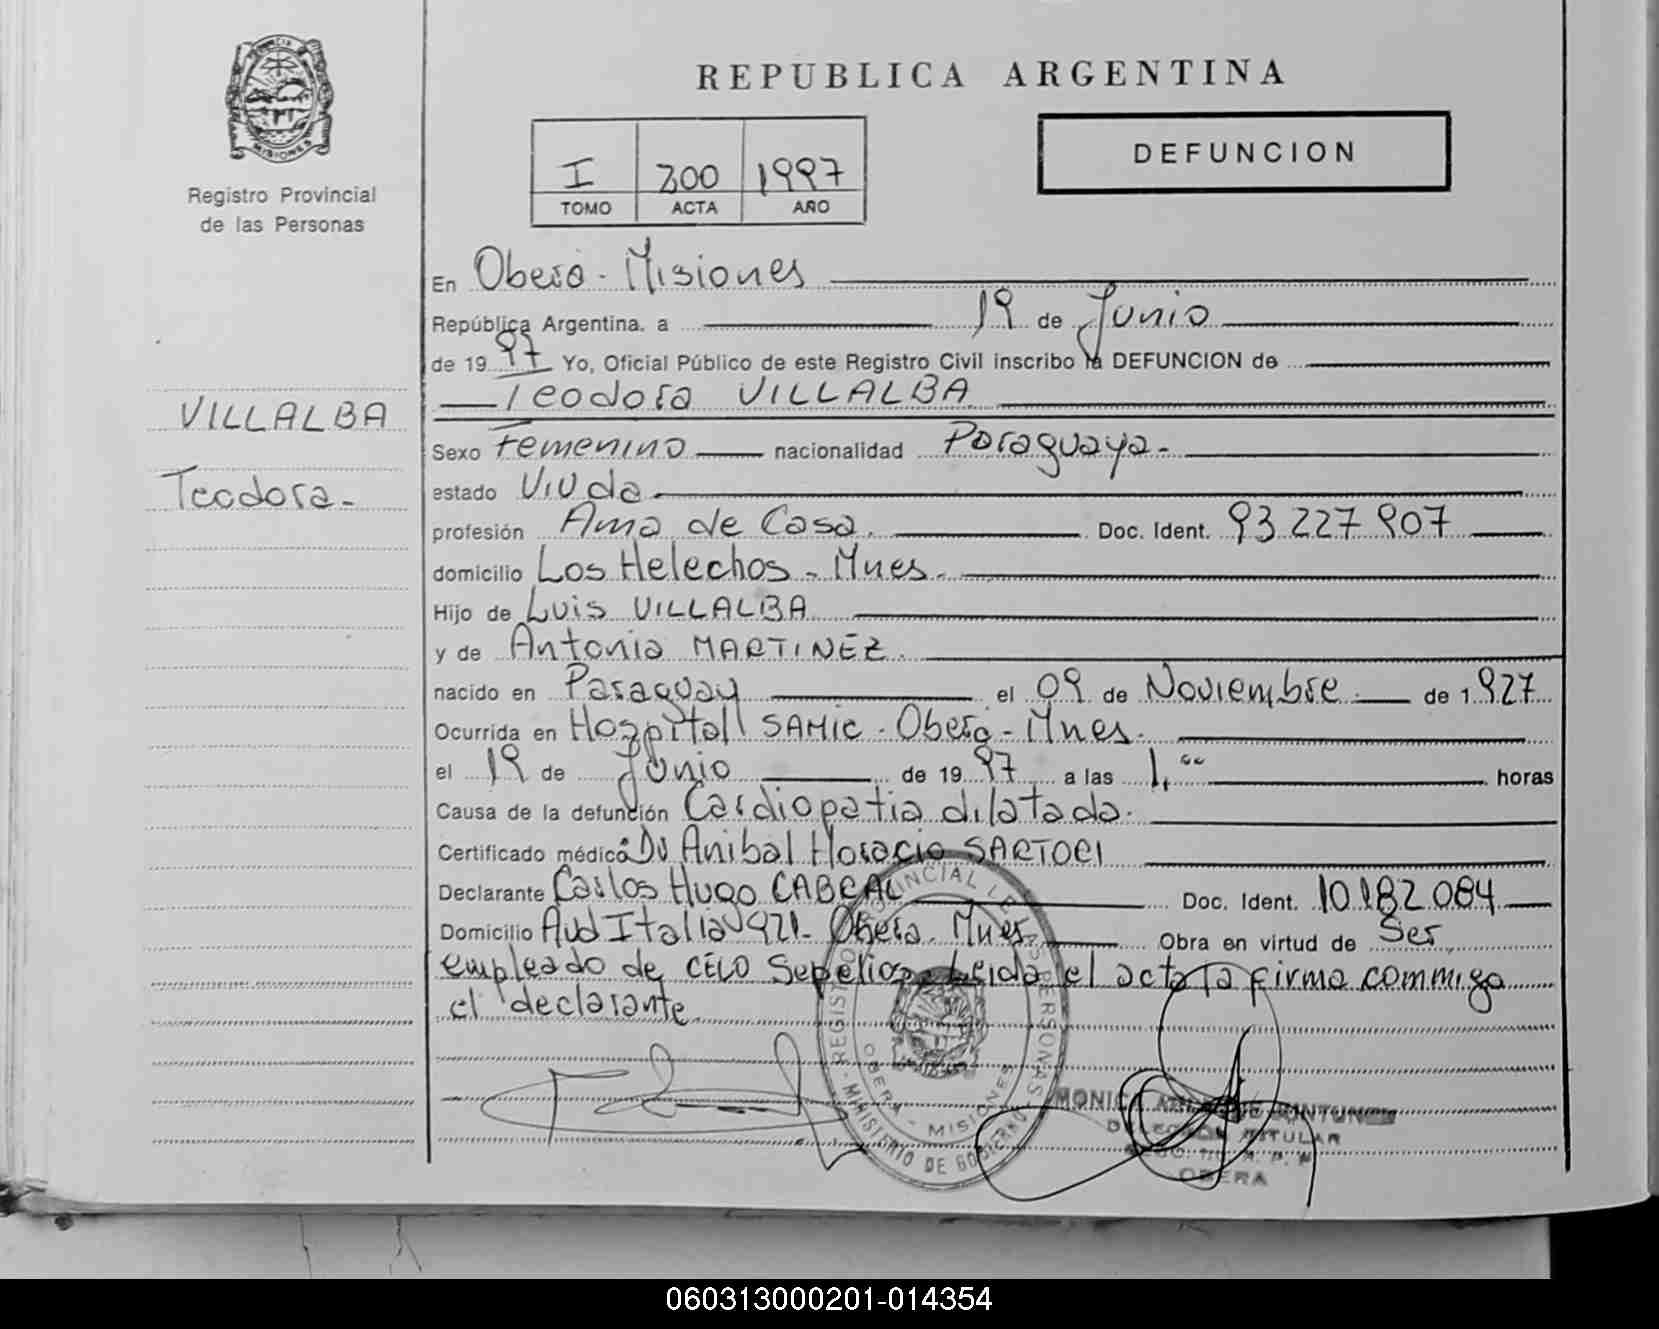 REPUBLICA ARGENTINA
DEFUNCION
MISIONES
Registro Provincial
de las Personas
I 200 1997
TOMO ACTA AÑO
En Oberá - Misiones
República Argentina, a 19 de Junio
de 1997 Yo, Oficial Público de este Registro Civil inscribo la DEFUNCION de
Teodora VILLALBA
VILLALBA
Sexo Femenino nacionalidad Paraguaya.
estado Viuda.
Teodora.
profesión Ama de Casa. Doc. Ident. 93 227 907
domicilio Los Helechos - Mnes.
Hijo de Luis VILLALBA
y de Antonia MARTINEZ.
nacido en Paraguay el 09 de Noviembre de 1.927
Ocurrida en Hospital SAMIC - Oberá - Mnes.
el 19 de Junio de 1997 a las 1,00 horas
Causa de la defunción Cardiopatia dilatada.
Certificado médico: Anibal Horacio SARTORI
Declarante Carlos Hugo CABRAL Doc. Ident. 10.182.084
Domicilio Avd Italia 921. Oberá. Mnes. Obra en virtud de Ser
empleado de CELO Sepelios. Leida el acta la firma commigo
el declarante
REGISTRO PROVINCIAL DE LAS PERSONAS
OBERA - MISIONES
MINISTERIO DE GOBIERNO
MONICA
TITULAR
OBERA
060313000201-014354